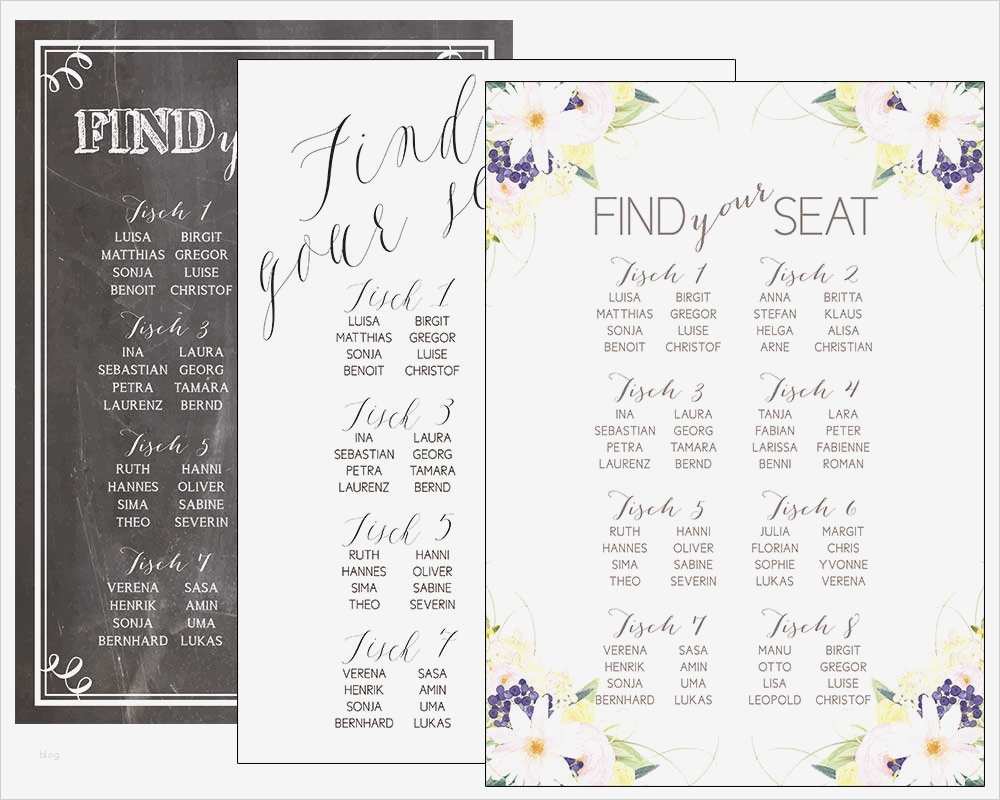 FIND y
Tisch 1
LUISA BIRGIT
MATTHIAS GREGOR
SONJA LUISE
BENOIT CHRISTOF
Tisch 3
INA LAURA
SEBASTIAN GEORG
PETRA TAMARA
LAURENZ BERND
Tisch 5
RUTH HANNI
HANNES OLIVER
SIMA SABINE
THEO SEVERIN
Tisch 7
VERENA SASA
HENRIK AMIN
SONJA UMA
BERNHARD LUKAS
blog
Find
your se
Tisch 1
LUISA BIRGIT
MATTHIAS GREGOR
SONJA LUISE
BENOIT CHRISTOF
Tisch 3
INA LAURA
SEBASTIAN GEORG
PETRA TAMARA
LAURENZ BERND
Tisch 5
RUTH HANNI
HANNES OLIVER
SIMA SABINE
THEO SEVERIN
Tisch 7
VERENA SASA
HENRIK AMIN
SONJA UMA
BERNHARD LUKAS
FIND your SEAT
Tisch 1
LUISA BIRGIT
MATTHIAS GREGOR
SONJA LUISE
BENOIT CHRISTOF
Tisch 2
ANNA BRITTA
STEFAN KLAUS
HELGA ALISA
ARNE CHRISTIAN
Tisch 3
INA LAURA
SEBASTIAN GEORG
PETRA TAMARA
LAURENZ BERND
Tisch 4
TANJA LARA
FABIAN PETER
LARISSA FABIENNE
BENNI ROMAN
Tisch 5
RUTH HANNI
HANNES OLIVER
SIMA SABINE
THEO SEVERIN
Tisch 6
JULIA MARGIT
FLORIAN CHRIS
SOPHIE YVONNE
LUKAS VERENA
Tisch 7
VERENA SASA
HENRIK AMIN
SONJA UMA
BERNHARD LUKAS
Tisch 8
MANU BIRGIT
OTTO GREGOR
LISA LUISE
LEOPOLD CHRISTOF